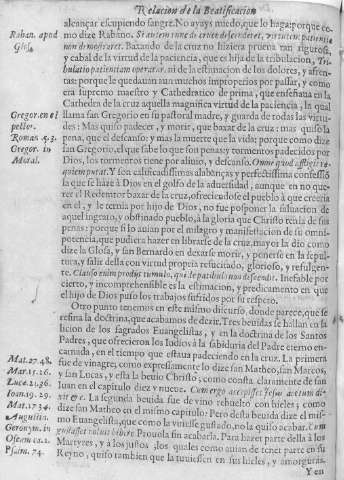 Relacion de la Beatificacion
alcançar escupiendo sangre. No ayays miedo, que lo haga: porque co-
Raban. apud
Glos.
mo dize Rabano. Si autem tunc de cruce descenderet, virtutem patientiæ
non demonstraret. Baxando de la cruz no hiziera prueua tan rigurosa,
y cabal de la virtud de la paciencia, que es hija de la tribulacion, Tri-
bulatio patientiam operatur. ni de la estimacion de los dolores, y afren-
tas: porque le quedauan aun muchos improperios por passar, y como
era supremo maestro y Cathedratico de prima, que enseñaua en la
Cathedra de la cruz aquella magnifica virtud de la paciencia, la qual
Gregor. en el
pastor.
Roman. 5.3.
Gregor. in
Moral.
llama san Gregorio en su pastoral madre, y guarda de todas las virtu-
des: Mas quiso padecer, y morir, que baxar de la cruz: mas quiso la
pena, que el descanso: y mas la muerte que la vida: porque como dize
san Gregorio, el que sabe lo que son penas y tormentos padecidos por
Dios, los tormentos tiene por aliuio, y descanso.
Y son calificadissimas alabanças y perfectissima confessiõ
la que se haze à Dios en el golfo de la aduersidad, aunque en no que-
rer el Redentor baxar de la cruz, ofreciendose el pueblo à que creeria
en el, y le ternia por hijo de Dios, no fue posponer la saluacion de
aquel ingrato, y obstinado pueblo, à la gloria que Christo tenia de sus
penas: porque si lo auian por el milagro y manifestacion de su omni-
potencia, que pudiera hazer en librarse de la cruz, mayor la dio como
dize la Glosa, y san Bernardo en dexarse morir, y ponerse en la sepul-
tura, y salir della con virtud propria resucitado, glorioso, y refulgen-
te. Inefable por
cierto, y incomprehensible es la estimacion, y predicamento en que
el hijo de Dios puso los trabajos sufridos por su respeto.
Otro punto tenemos en este mismo discurso, donde parece, que se
refina la doctrina, que acabamos de dezir. Tres beuidas se hallan en fi
lucion de los sagrados Euangelistas, y en la doctrina de los Santos
Padres, que ofrecieron los Iudios à la sabiduria del Padre eterno en-
carnada, en el tiempo que estaua padeciendo en la cruz. La primera
Mat. 27.48.
Mar. 15.26.
Luce. 21.36.
Ioan. 19.29.
Mat. 17.34.
Augustin.
Geronym. in
Oseam ca. 2.
Psalm. 74.
fue de vinagre, como expressamente lo dize san Matheo, san Marcos,
y san Lucas, y esta la beuio Christo, como consta claramente de san
Iuan en el capitulo diez y nueue. Cum ergo accepisset Iesus acetum di-
xit &c. La segunda beuida fue de vino rebuelto con hieles; como
dize san Matheo en el mismo capitulo: Pero desta beuida dize el mis-
mo Euangelista, que como la vuiesse gustado, no la quiso acabar. Cum
gustasset noluit bibere Prouola sin acabarla. Para hazer parte della à los
Martyres, y à los justos, los quales como auian de tener parte en su
Reyno, quiso tambien que la tuuiessen en sus hieles, y amorguras.
Y en